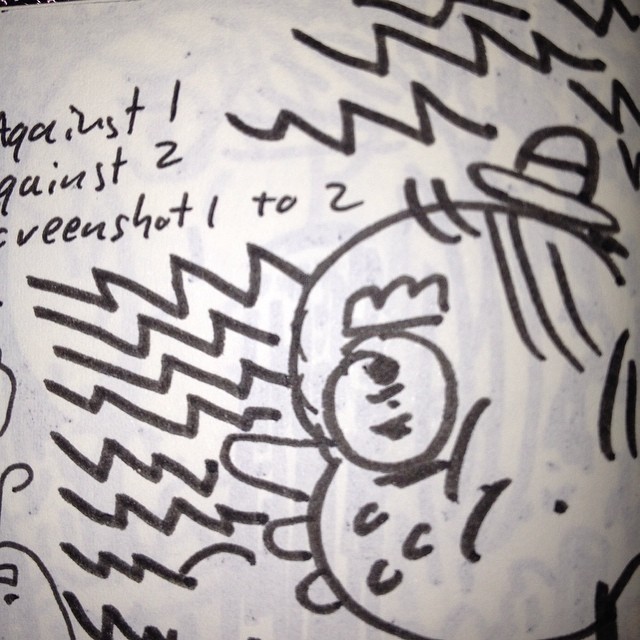 Against 1
against 2
screenshot 1 to 2